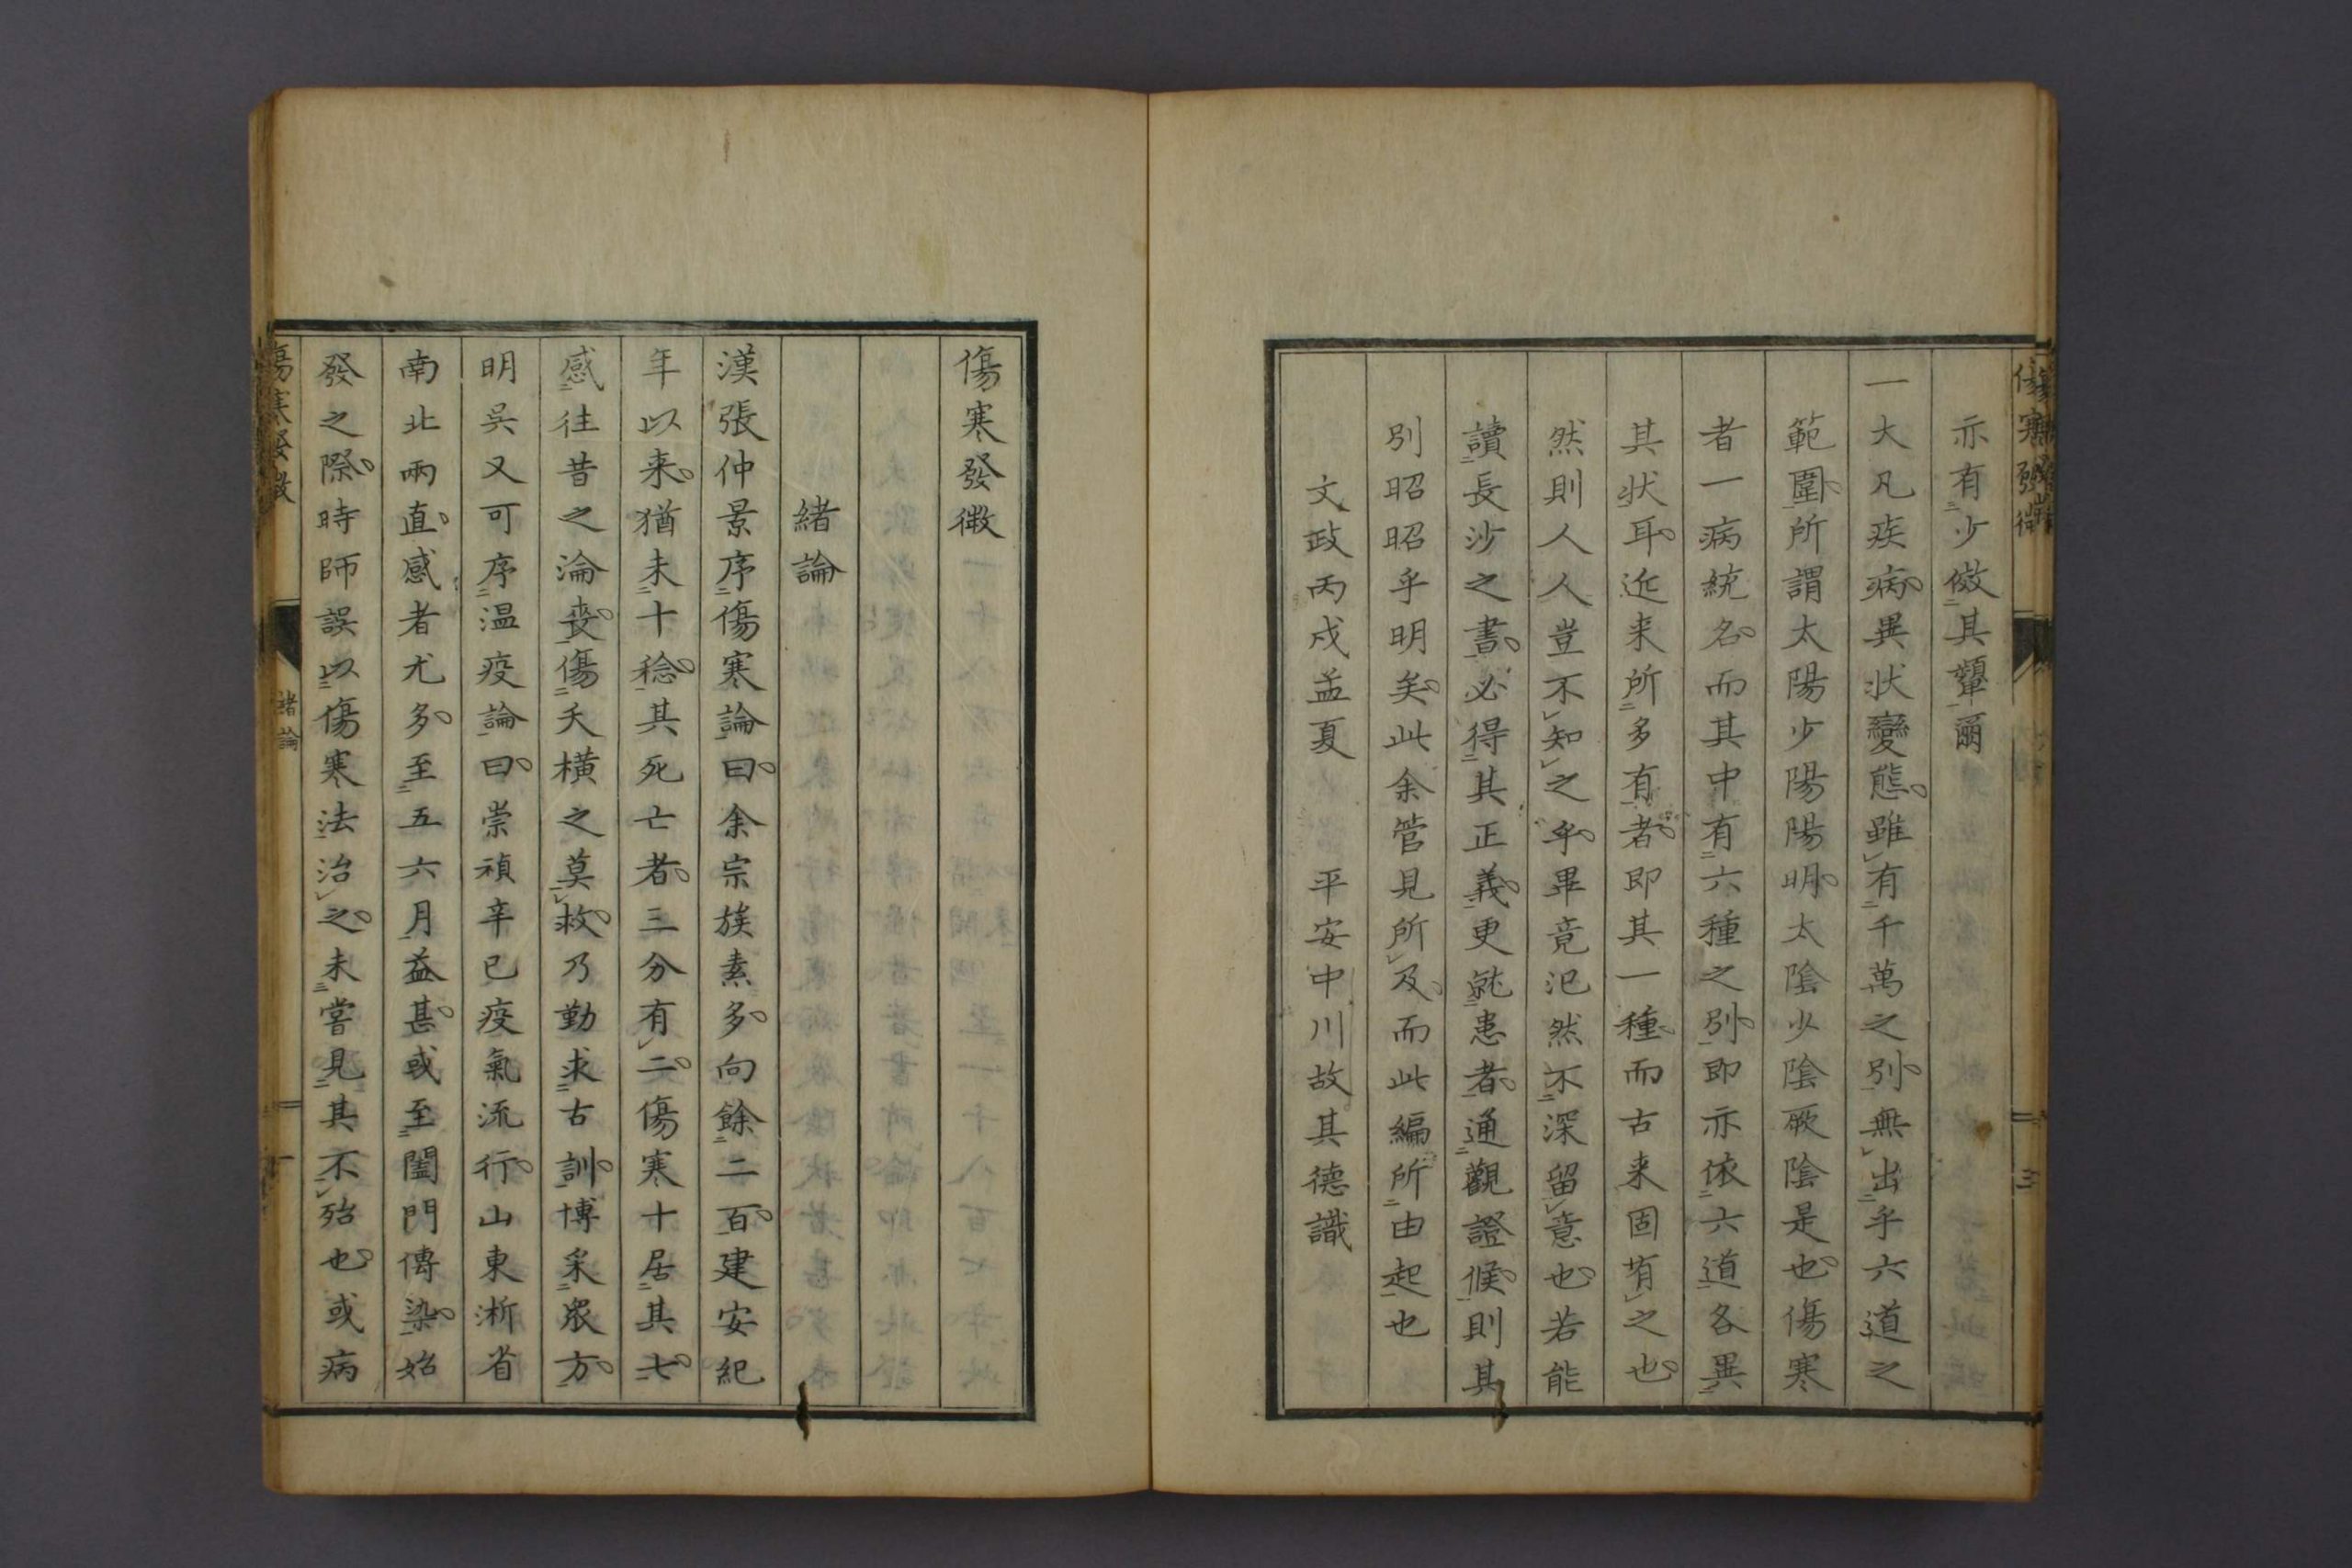 亦有少傚其顰爾
一大凡疾病異状變態雖有千萬之別無出乎六道之
範圍所謂太陽少陽陽明太陰少陰厥陰是也傷寒
者一病統名而其中有六種之別即亦依六道各異
其状耳近来所多有者即其一種而古来固有之也
然則人人豈不知之乎畢竟氾然不深留意也若能
讀長沙之書必得其正義更就患者通觀證候則其
別昭昭乎明矣此余管見所及而此編所由起也
文政丙戌孟夏　平安中川故其德識
傷寒發微
三
傷寒發微
緒論
漢張仲景序傷寒論曰余宗族素多向餘二百建安紀
年以来猶未十稔其死亡者三分有二傷寒十居其七
感往昔之淪喪傷夭橫之莫救乃勤求古訓博采眾方
明吳又可序溫疫論曰崇禎辛巳疫氣流行山東淅省
南北兩直感者尤多至五六月益甚或至闔門傳染始
發之際時師誤以傷寒法治之未嘗見其不殆也或病
傷寒發微
緒論
一